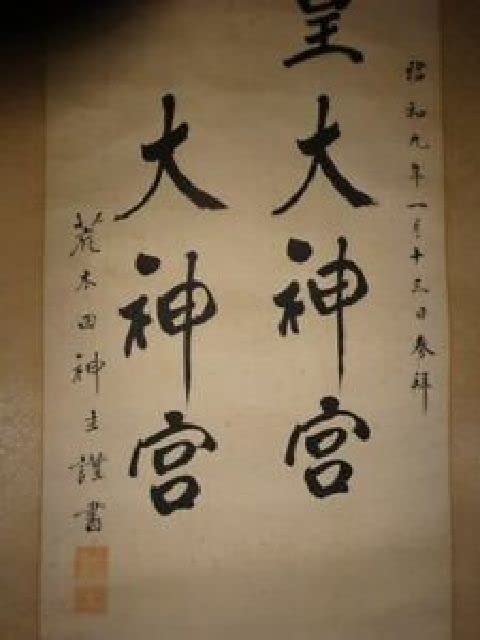 昭和九年一月十三日奉拜
皇大神宮
大神宮
荒木田神主謹書